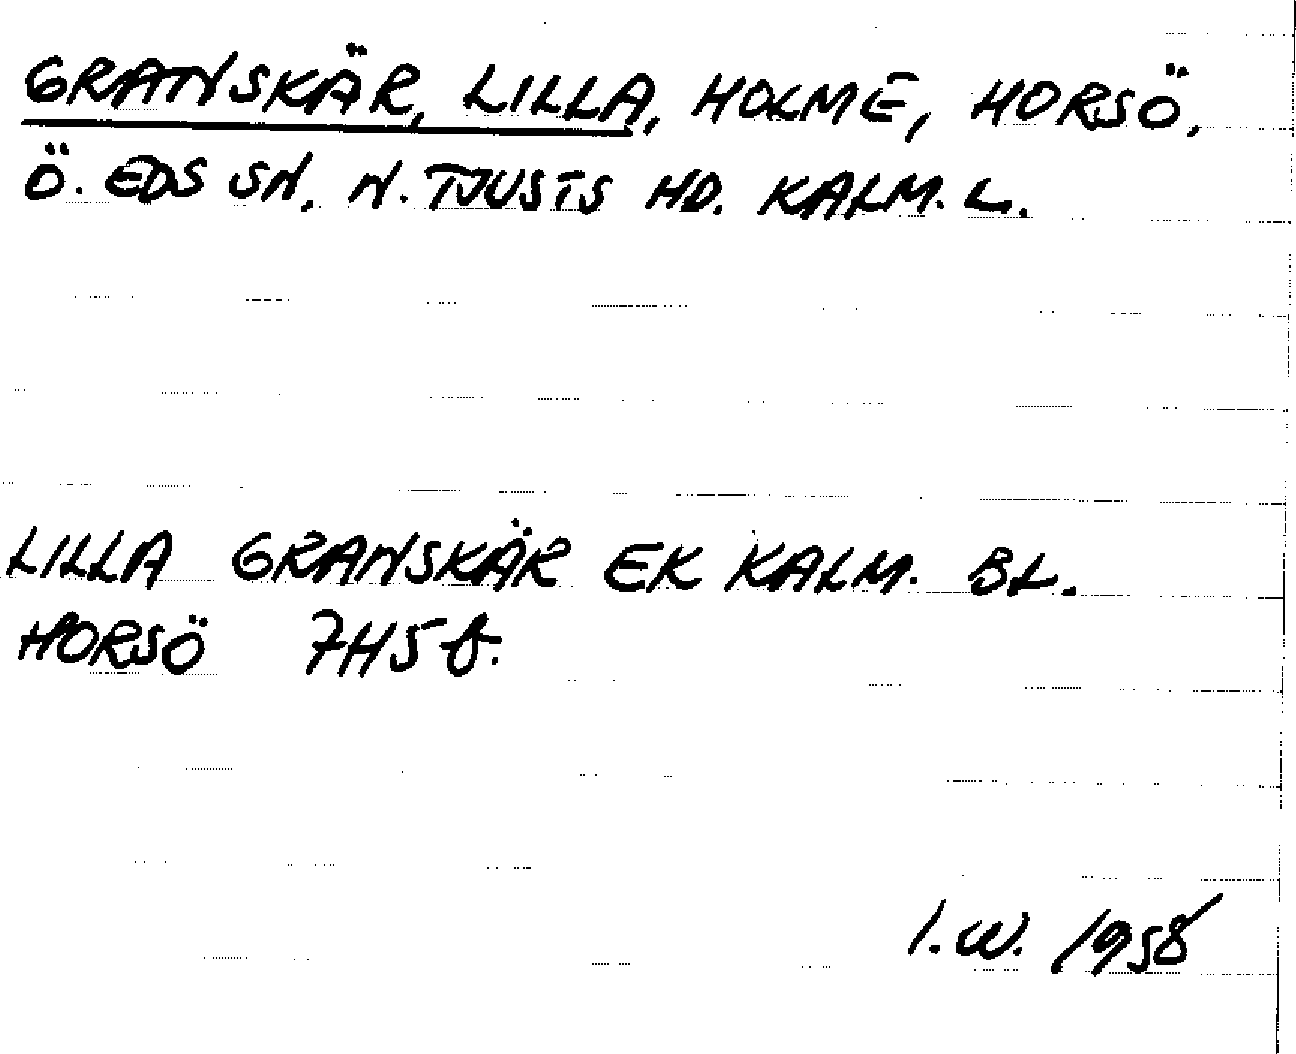 GRANSKÄR, LILLA, HOLME, HORSÖ,
Ö. EDS SN. N. TJUSTS HD. KALM. L.
LILLA GRANSKÄR EK KALM. BL.
HORSÖ 7H5f.
I.W. 1958